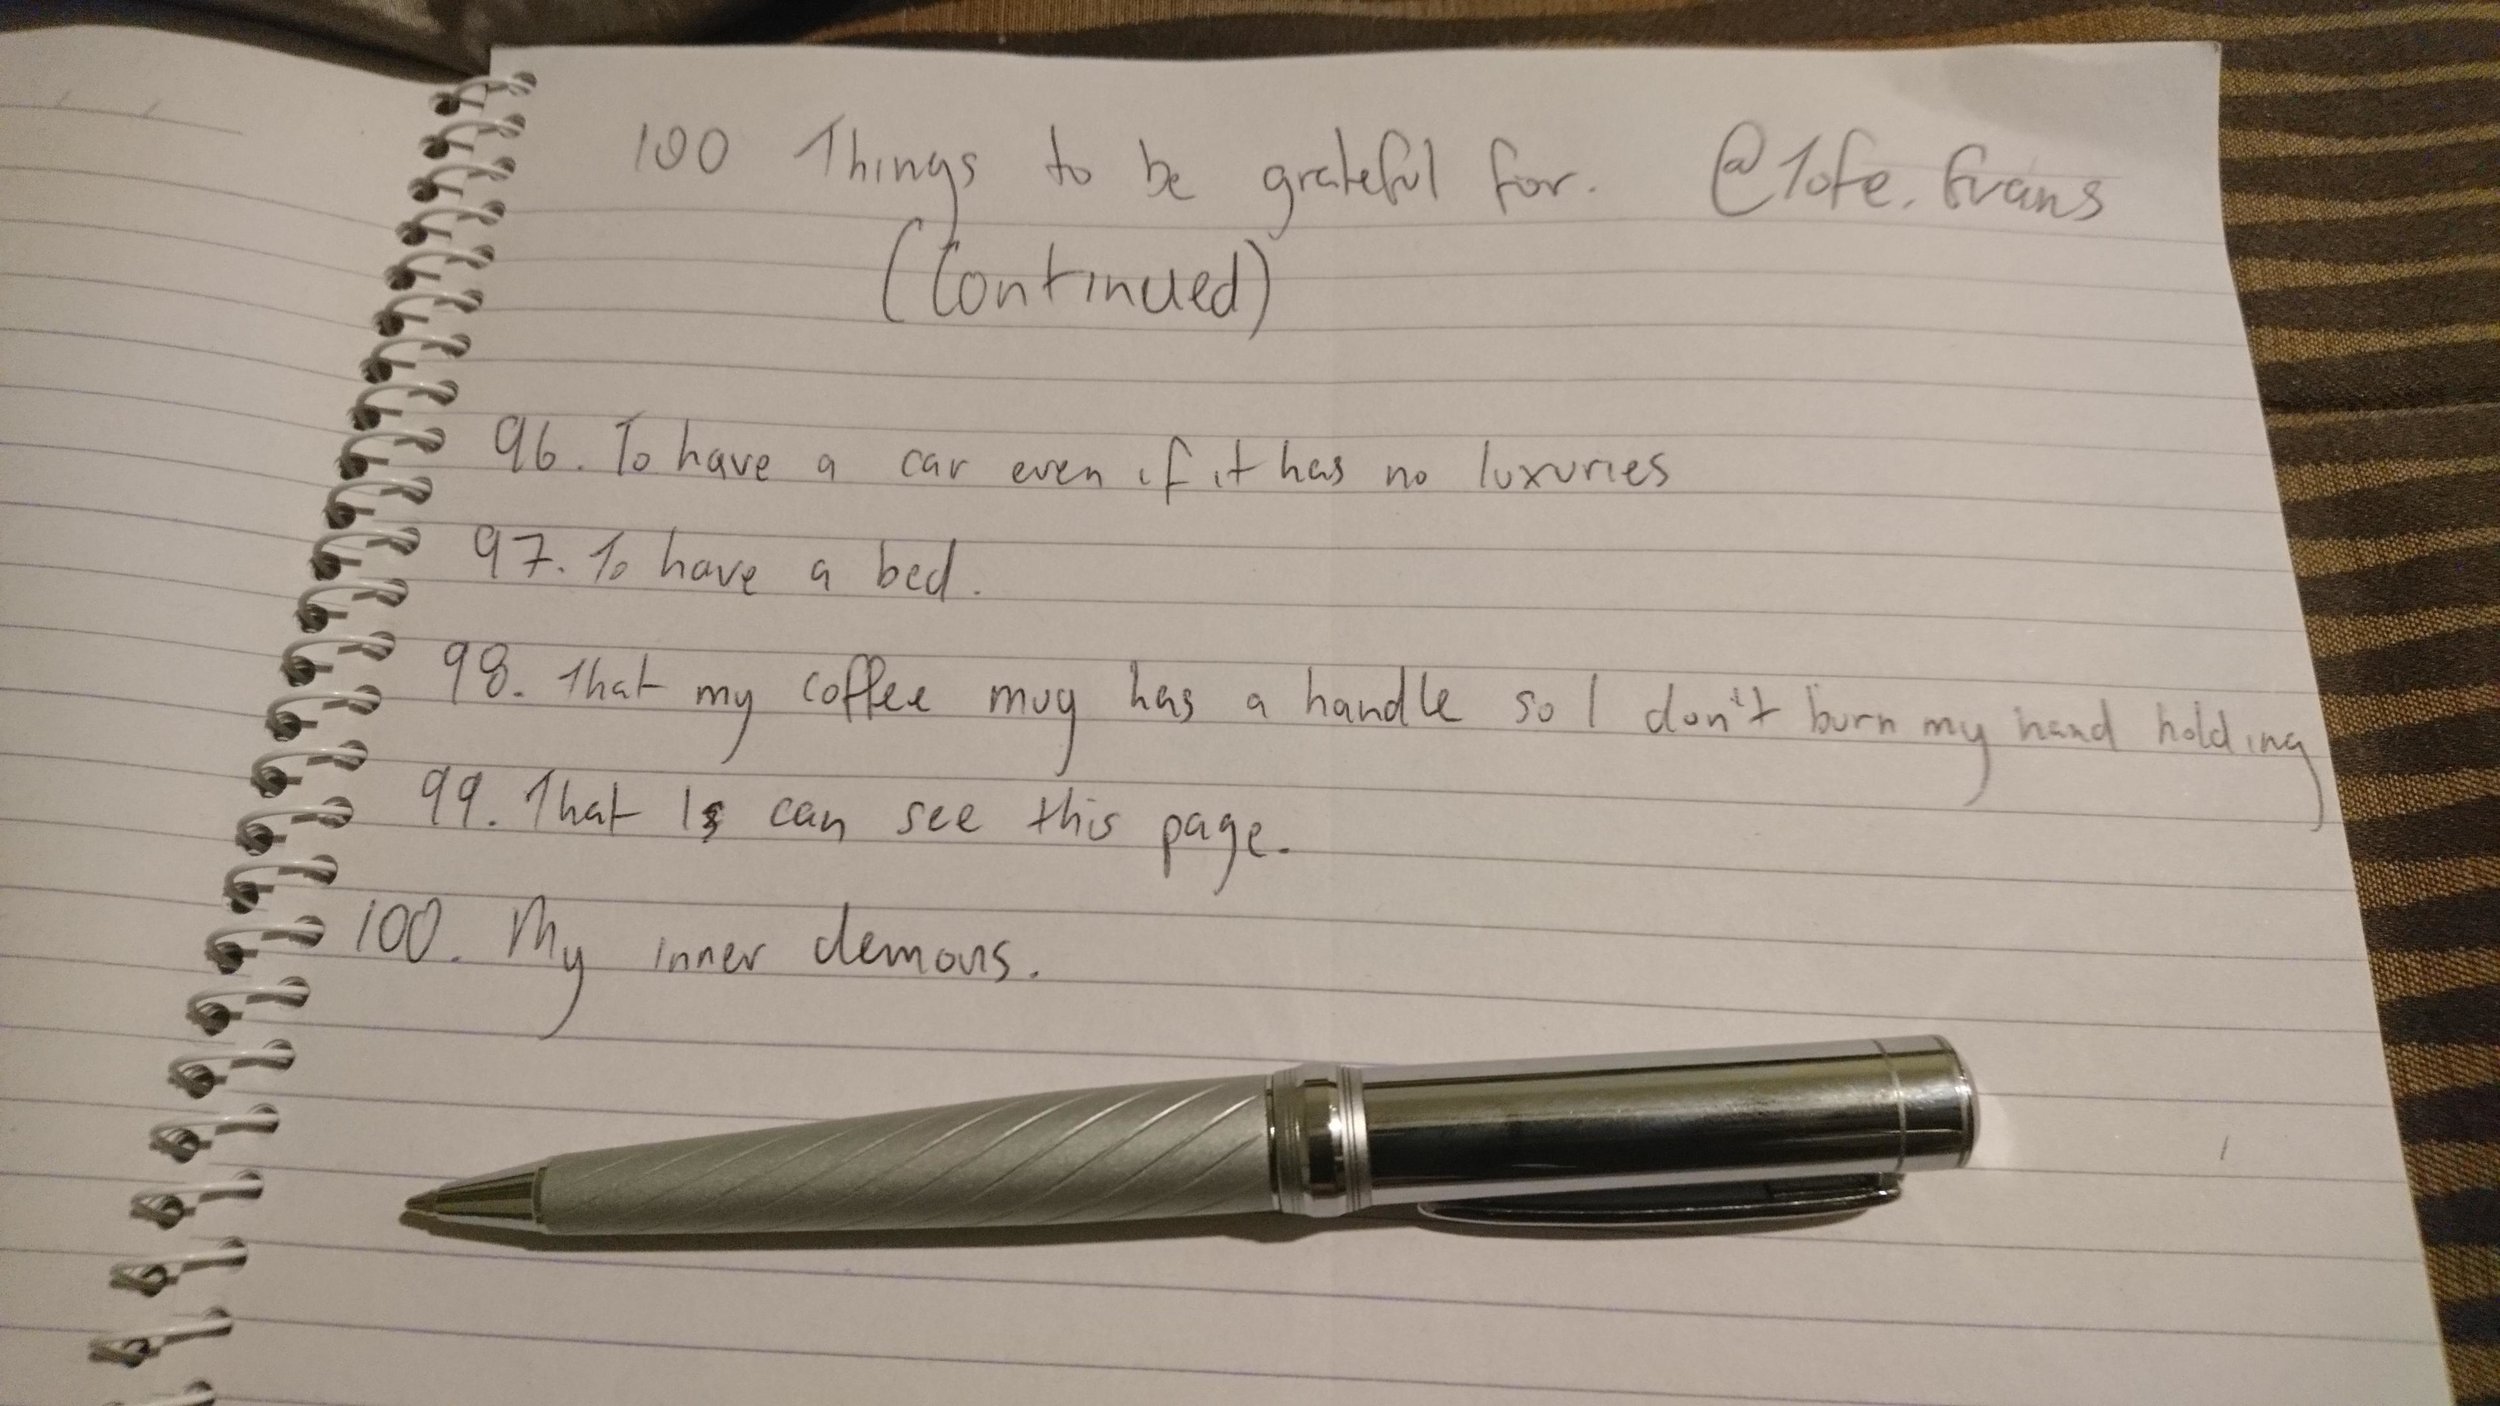 100 Things to be grateful for. @Tofe.Evans
(Continued)
96. To have a car even if it has no luxuries
97. To have a bed.
98. That my coffee mug has a handle so I don't burn my hand holding
99. That I can see this page.
100. My inner demons.